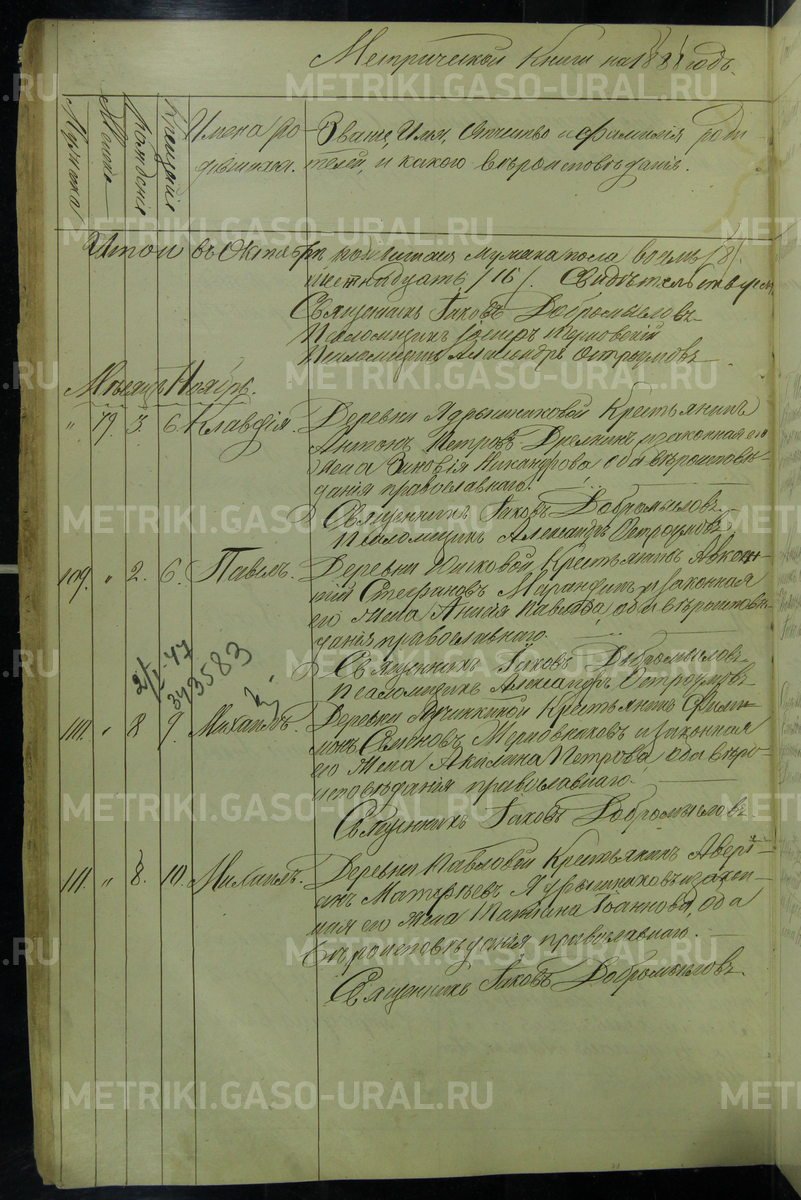 Метрической Книги на 1881 годъ.
Мужска
Женска
Рожденія
Крещенія
Имена ро-
дившихся.
Званіе, Имя, Отчество и фамилія роди-
телей, и какого вѣроисповѣданія.
Итого въ Октябрѣ родившихся мужска пола восемь /8/.
шестнадцать /16/. Свидѣтельствуемъ
Священникъ Іаковъ Добромысловъ
Псаломщикъ
Псаломщикъ Александръ Остроумовъ
Мѣсяцъ Ноябрь.
" 79. 3 6. Клавдія. Деревни Ядрышниковой Крестьянинъ
Антонъ Петровъ и законная его
жена Зиновія Никандрова, оба вѣроисповѣ-
данія православнаго.
Священникъ Іаковъ Добромысловъ
Псаломщикъ Александръ Остроумовъ
109. " 2. 6. Павелъ. Деревни Юшковой Крестьянинъ
Стефановъ и законная
его жена Анисія Павлова, оба вѣроисповѣ-
данія православнаго.
2/I-47
343583
Священникъ Іаковъ Добромысловъ
Псаломщикъ Александръ Остроумовъ
110. " 8 9. Михаилъ. Деревни Крестьянинъ Фили-
монъ Семеновъ и законная
его жена Акилина Петрова, оба вѣро-
исповѣданія православнаго.
Священникъ Іаковъ Добромысловъ
111. " 8. 10. Михаилъ. Деревни Павловой Крестьянинъ Аверкі-
Матвѣевъ Ядрышниковъ и закон-
ная его жена Татіана Іоаннова, оба
вѣроисповѣданія православнаго.
Священникъ Іаковъ Добромысловъ
METRIKI.GASO-URAL.RU